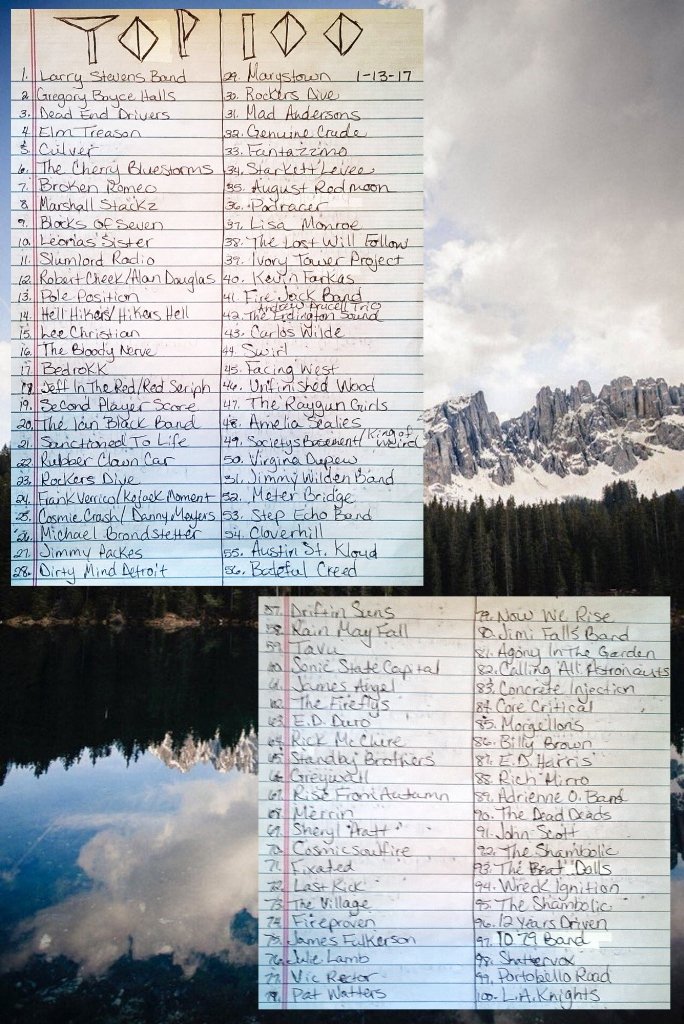 TOP 100
1. Larry Stevens Band
2. Gregory Boyce Halls
3. Dead End Drivers
4. Elm Treason
5. Culver
6. The Cherry Bluestorms
7. Broken Romeo
8. Marshall Stackz
9. Blocks of Seven
10. Leonias Sister
11. Slumlord Radio
12. Robert Cheek/Alan Douglas
13. Pole Position
14. Hell Hikers/Hikers Hell
15. Lee Christian
16. The Bloody Nerve
17. Bedrokk
18. Jeff In The Red/Red Seriph
19. Second Player Score
20. The Ian Black Band
21. Sanctioned To Life
22. Rubber Clown Car
23. Rockers Dive
24. Frank Verrico/Kojack Moment
25. Cosmic Crash/Danny Mayers
26. Michael Brandstetter
27. Jimmy Packes
28. Dirty Mind Detroit
29. Marystown 1-13-17
30. Rockers Dive
31. Mad Andersons
32. Genuine Crude
33. Fantazzmo
34. Starkett Levee
35. August Redmoon
36. Podracer
37. Lisa Monroe
38. The Lost Will Follow
39. Ivory Tower Project
40. Kevin Farkas
41. Fire Jack Band
Andrew Purcell Trio
42. The Erdington Sound
43. Carlos Wilde
44. Swirl
45. Facing West
46. Unfinished Wood
47. The Raygun Girls
48. Amelia Sealies
49. Societys Basement/King of Weird
50. Virgina Depew
51. Jimmy Wilden Band
52. Meter Bridge
53. Step Echo Band
54. Cloverhill
55. Austin St. Kloud
56. Baleful Creed
57. Driftin Suns
58. Rain May Fall
59. Tavu
60. Sonic State Capital
61. James Angel
62. The Fireflys
63. E.D. Duro
64. Rick McClure
65. Standby Brothers
66. Greywall
67. Rise From Autumn
68. Merrin
69. Sheryl Pratt
70. Cosmicsoulfire
71. Fixated
72. Last Kick
73. The Village
74. Fireproven
75. James Fulkerson
76. Julie Lamb
77. Vic Rector
78. Pat Watters
79. Now We Rise
80. Jimi Falls Band
81. Agony In The Garden
82. Calling All Astronauts
83. Concrete Injection
84. Core Critical
85. Morgellons
86. Billy Brown
87. E.D Harris
88. Rich Mirro
89. Adrienne O. Band
90. The Dead Deads
91. John Scott
92. The Shambolic
93. The Beat Dolls
94. Wreck Ignition
95. The Shambolic
96. 12 Years Driven
97. 10 79 Band
98. Shattervox
99. Portobello Road
100. L.A. Knights